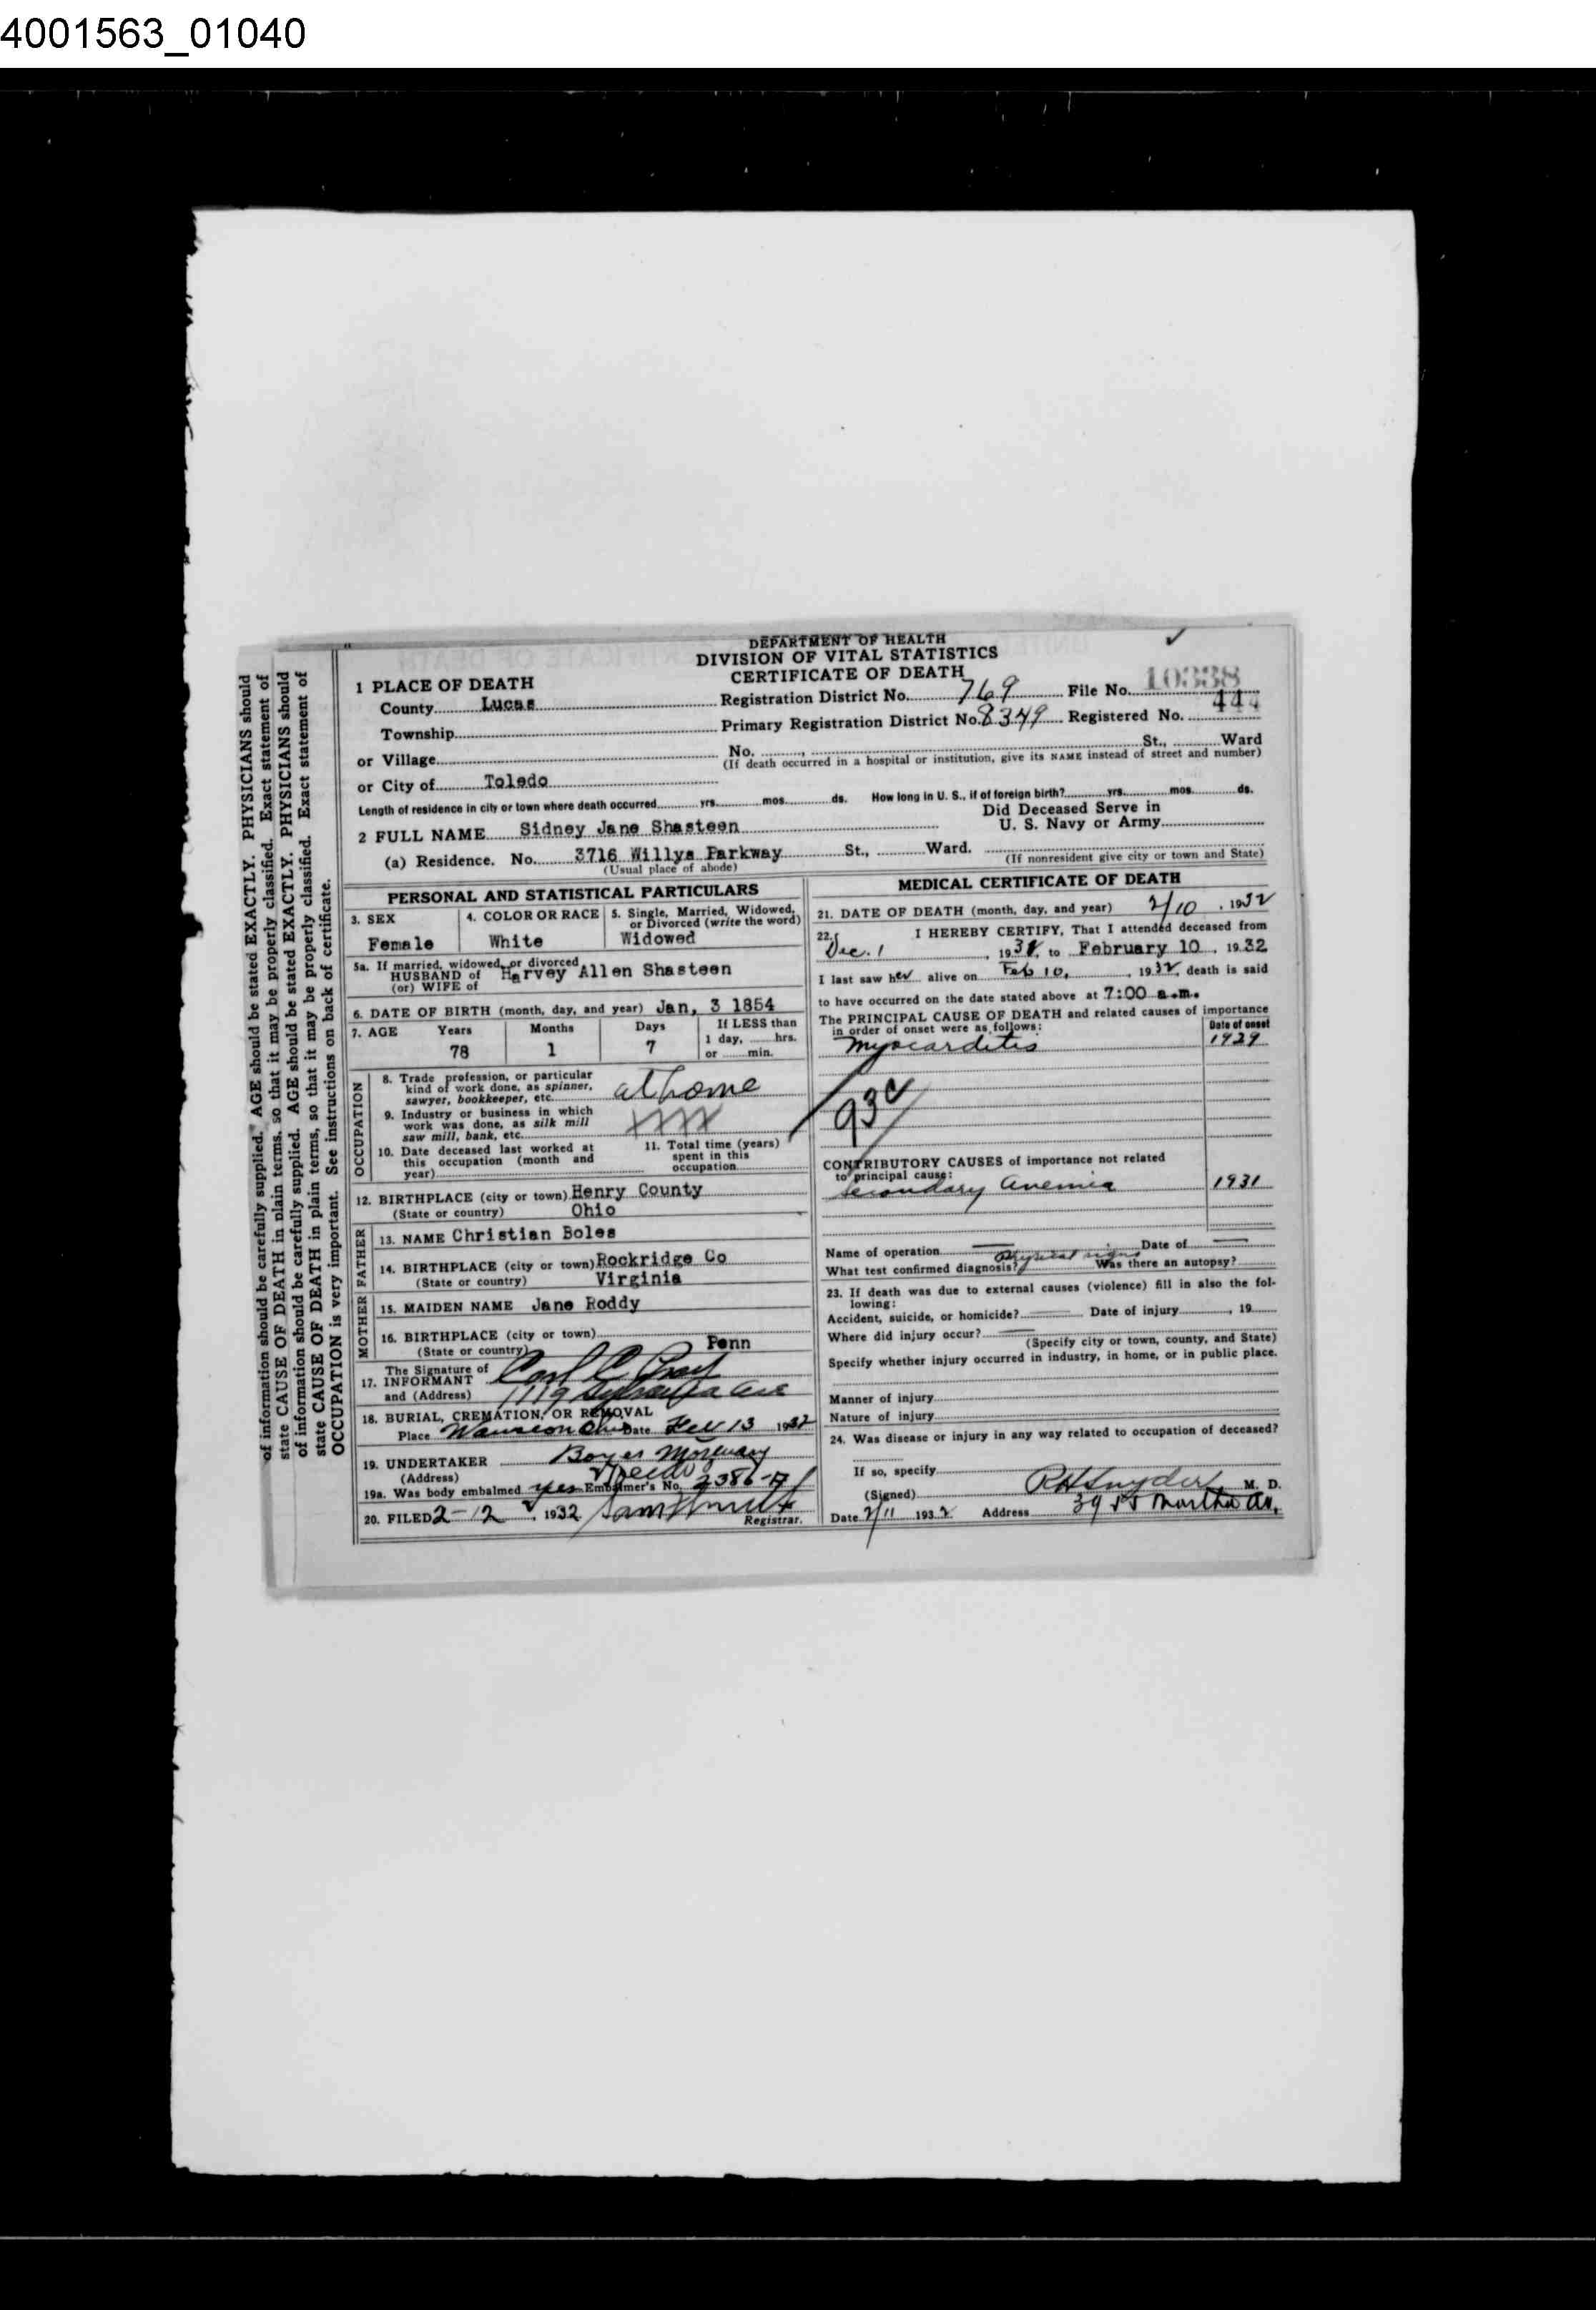 4001563_01040
DEPARTMENT OF HEALTH
DIVISION OF VITAL STATISTICS
CERTIFICATE OF DEATH
1 PLACE OF DEATH
County Lucas
Registration District No. 769 File No. 10338
Township
Primary Registration District No. 8349 Registered No. 444
or Village
No. , St., Ward
(If death occurred in a hospital or institution, give its NAME instead of street and number)
or City of Toledo
Length of residence in city or town where death occurred yrs. mos. ds. How long in U. S., if of foreign birth? yrs. mos. ds.
2 FULL NAME Sidney Jane Shasteen
Did Deceased Serve in
U. S. Navy or Army
(a) Residence. No. 3716 Willys Parkway St., Ward.
(Usual place of abode)
(If nonresident give city or town and State)
PERSONAL AND STATISTICAL PARTICULARS
3. SEX
Female
4. COLOR OR RACE
White
5. Single, Married, Widowed,
or Divorced (write the word)
Widowed
5a. If married, widowed, or divorced
HUSBAND of
(or) WIFE of
Harvey Allen Shasteen
6. DATE OF BIRTH (month, day, and year) Jan, 3 1854
7. AGE Years Months Days If LESS than
1 day, hrs.
78 1 7 or min.
OCCUPATION
8. Trade profession, or particular
kind of work done, as spinner,
sawyer, bookkeeper, etc. at home
9. Industry or business in which
work was done, as silk mill
saw mill, bank, etc.
10. Date deceased last worked at
this occupation (month and
year)
11. Total time (years)
spent in this
occupation
12. BIRTHPLACE (city or town) Henry County
(State or country) Ohio
FATHER
13. NAME Christian Boles
14. BIRTHPLACE (city or town) Rockridge Co
(State or country) Virginia
MOTHER
15. MAIDEN NAME Jane Roddy
16. BIRTHPLACE (city or town)
(State or country) Penn
The Signature of
17. INFORMANT Carl C
and (Address) 1119 Ave
18. BURIAL, CREMATION, OR REMOVAL
Place Wauseon Ohio Date Feb 13 1932
19. UNDERTAKER Boyer Mortuary
(Address) Toledo
19a. Was body embalmed yes Embalmer's No. 2386-A
20. FILED 2-12, 1932
Registrar.
MEDICAL CERTIFICATE OF DEATH
21. DATE OF DEATH (month, day, and year) 2/10, 1932
22. I HEREBY CERTIFY, That I attended deceased from
Dec. 1, 19 to February 10, 1932
I last saw her alive on Feb 10, 1932, death is said
to have occurred on the date stated above at 7:00 a.m.
The PRINCIPAL CAUSE OF DEATH and related causes of importance
in order of onset were as follows:
Date of onset
Myocarditis 1929
93c
CONTRIBUTORY CAUSES of importance not related
to principal cause:
Secondary Anemia 1931
Name of operation Date of
What test confirmed diagnosis? Physical signs Was there an autopsy?
23. If death was due to external causes (violence) fill in also the fol-
lowing:
Accident, suicide, or homicide? Date of injury , 19
Where did injury occur?
(Specify city or town, county, and State)
Specify whether injury occurred in industry, in home, or in public place.
Manner of injury
Nature of injury
24. Was disease or injury in any way related to occupation of deceased?
If so, specify
(Signed) R H Snyder M. D.
Date 2/11 1932 Address Martha Av.
of information should be carefully supplied. AGE should be stated EXACTLY. PHYSICIANS should
state CAUSE OF DEATH in plain terms, so that it may be properly classified. Exact statement of
of information should be carefully supplied. AGE should be stated EXACTLY. PHYSICIANS should
state CAUSE OF DEATH in plain terms, so that it may be properly classified. Exact statement of
OCCUPATION is very important. See instructions on back of certificate.